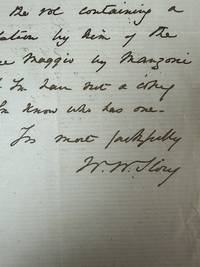 the vol containing a
lation by him of the
ce Maggio by Manzoni
I have not a copy
know who has one.
Yrs most faithfully
W. W. Story